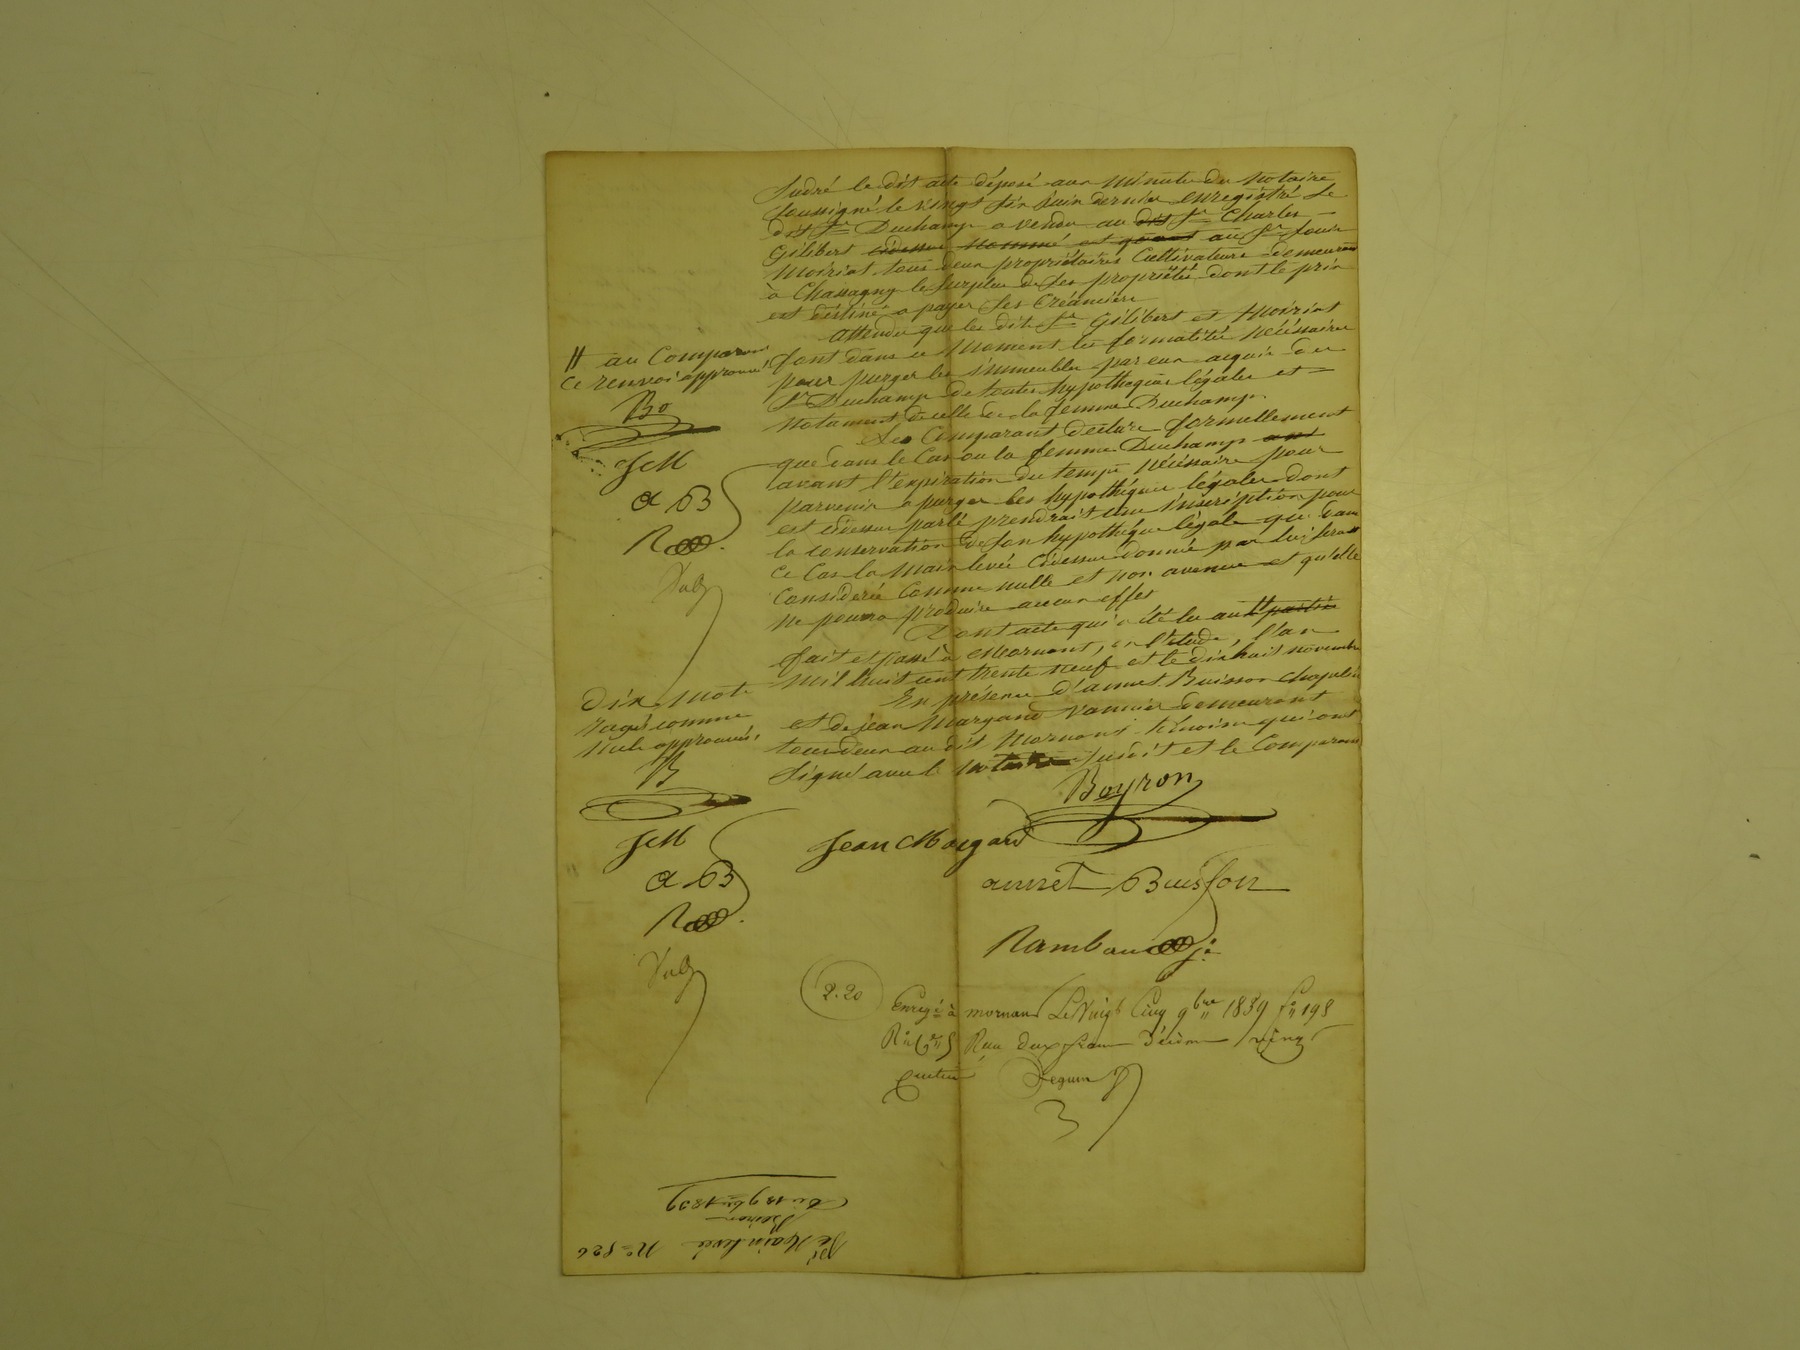 Sudré le dit acte déposé aux minute du notaire
soussigné le vingt six juin dernier enregistré le
dit Sr Duchamp a vendu au dit Sr Charles
Gilibert cidessus nommé et quant au Sr Louis
Moiriat tous deux propriétaires Cultivateurs demeurant
à Chassagny le surplus de ses propriétés dont le prix
est destiné a payer ses Créanciers
attendu que les dit Sr Gilibert et Moiriat
font dans ce moment les formalités nécéssaires
pour purger les immeubles par eux acquis du
Sr Duchamp de toutes hypothèques légales et
notament de celle de la femme Duchamp
Le Comparant déclare formellement
que dans le Cas ou la femme Duchamp
avant l'expiration du temps nécéssaire pour
parvenir a purger les hypothéques légales dont
est cidessus parlé prendrait une inscription pour
la conservation de son hypothéque légale que dans
ce Cas la main levée cidessus donnée par lui sera
Considerée Comme nulle et non avenue et qu'elle
ne pourra produire aucun effet
Dont acte qui a été lu aux parties
fait et passé à Mornant, en l'étude, l'an
mil huit cent trente neuf et le dix huit novembre
En présence d'annet Buisson chapelier
et de jean Margand Vannier demeurant
tous deux au dit Mornant témoins qui ont
signé avec le notaire susdit et le Comparant
H au Comparant
ce renvoi approuvé
Bo
JcM
a B
R
Dix mots
rayés comme
nuls approuvés
B
JcM
a B
R
Boyron
Jean Margand
annet Buisson
Rambaud je
2.20
Enregé à mornant Le Vingt Cinq 9bre 1839 fo 198
Ro Ce 5 Reçu deux francs décime vingt
Centimes Seguin
Pt Main levée No 526
Boiron
Du 18 9bre 1839